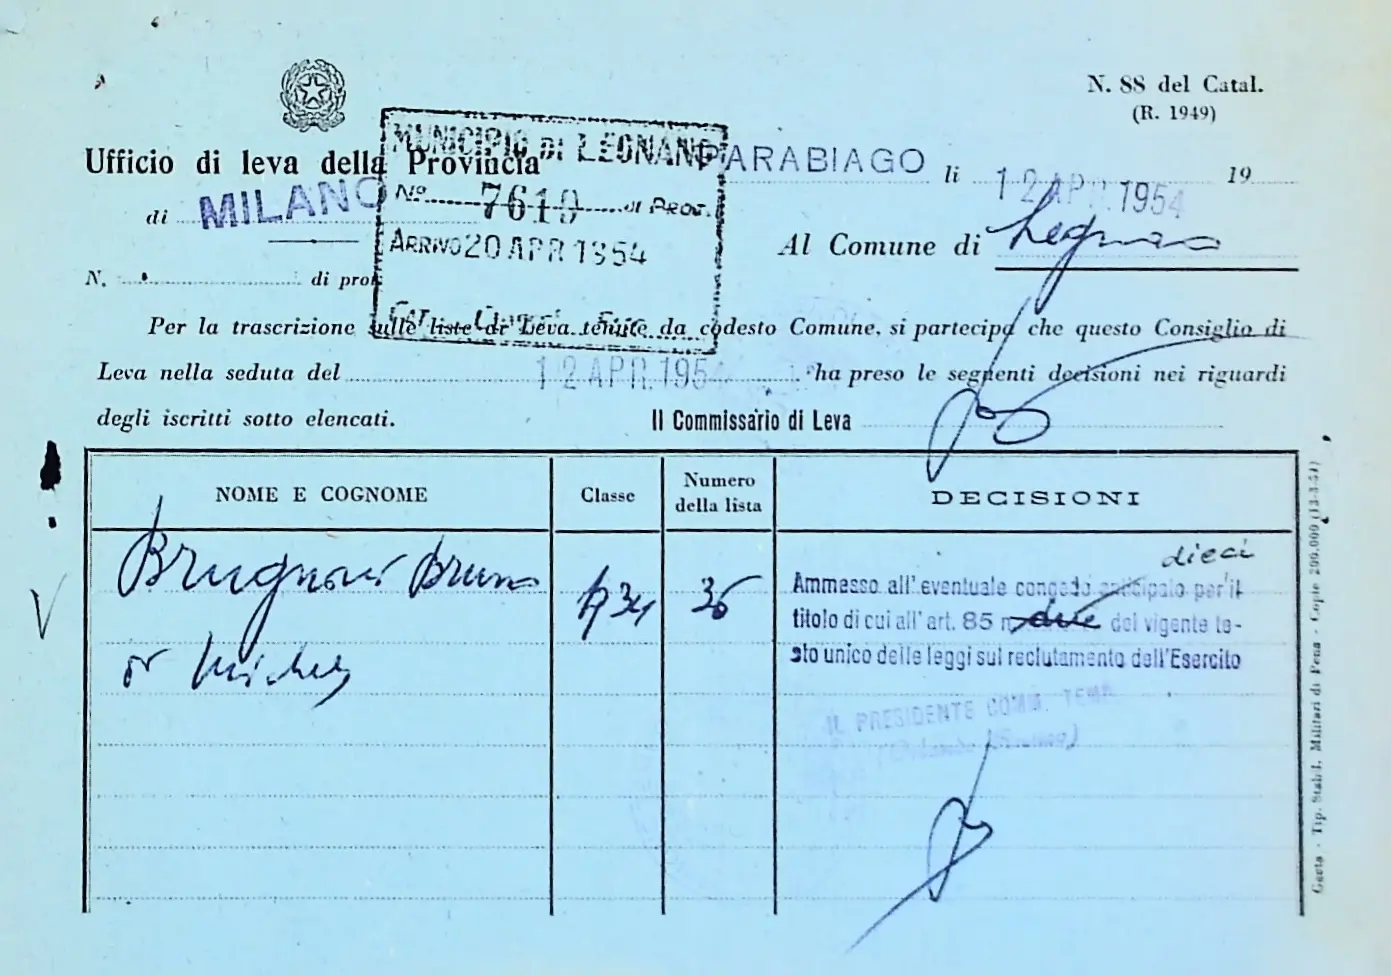 N. 88 del Catal.
(R. 1949)
MUNICIPIO DI LEGNANO
Ufficio di leva della Provincia
PARABIAGO li 12 APR. 1954 19
di MILANO
N° 7619 di PROT.
ARRIVO 20 APR 1954
Al Comune di Legnano
N. di prot
CAT.
Per la trascrizione sulle liste di Leva tenute da codesto Comune, si partecipa che questo Consiglio di
Leva nella seduta del 12 APR. 1954 ha preso le seguenti decisioni nei riguardi
degli iscritti sotto elencati.
Il Commissario di Leva
NOME E COGNOME
Classe
Numero della lista
DECISIONI
Bruno
1934
36
dieci
Ammesso all'eventuale congedo anticipato per il
titolo di cui all'art. 85 due del vigente te-
sto unico delle leggi sul reclutamento dell'Esercito
IL PRESIDENTE COMM. TEMP.
Gaeta - Tip. Stabil. Militari di Pena - Copie 200.000 (13-3-54)